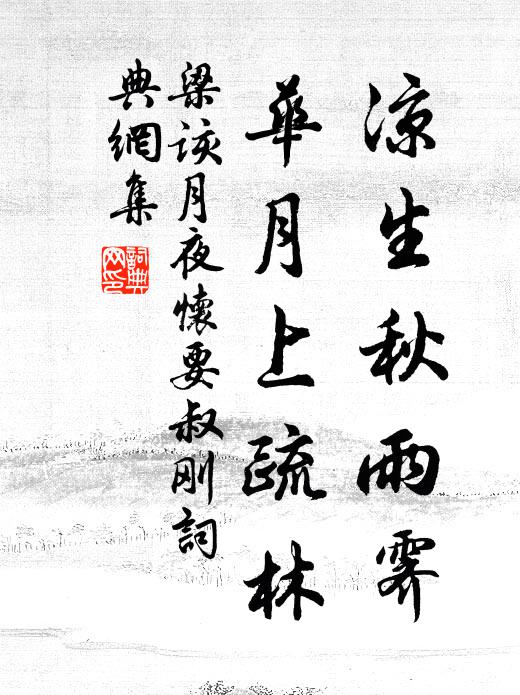 涼生秋雨霽
華月上疏林
梁該月夜懷要叔剛詞
典網集
詞典
网印